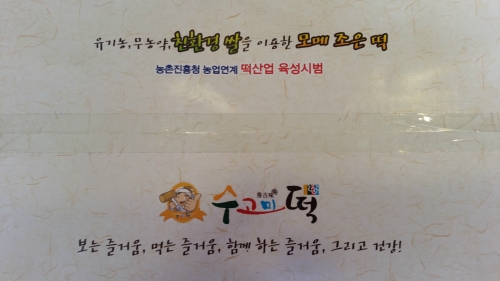 유기농,무농약,친환경 쌀을 이용한 모메 조은 떡
농촌진흥청 농업연계 떡산업 육성시범
수고미떡
보는 즐거움, 먹는 즐거움, 함께 하는 즐거움, 그리고 건강!